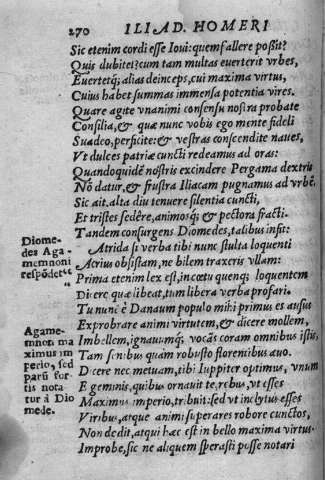 270 ILIAD. HOMERI
Sic etenim cordi esse Ioui: quem fallere possit?
Quis dubitet? cum tam multas euerterit vrbes,
Euertetq; alias deinceps, cui maxima virtus,
Cuius habet summas immensa potentia vires.
Quare agite vnanimi consensu nostra probate
Consilia, & quæ nunc vobis ego mente fideli
Suadeo, perficite: & vestras conscendite naues,
Vt dulces patriæ cuncti redeamus ad oras:
Quandoquidē nostris excindere Pergama dextris
Nō datur, & frustra Iliacam pugnamus ad vrbē.
Sic ait. alta diu tenuere silentia cuncti,
Et tristes sedêre, animosq; & pectora fracti.
Tandem consurgens Diomedes, talibus infit:
Diome-
des Aga-
memnoni
respōdet
Atrida si verba tibi nunc stulta loquenti
Acrius obsistam, ne bilem traxeris vllam:
Prima etenim lex est, in cœtu quenq; loquentem
Dicere quæ libeat, tum libera verba profari.
Tu nunc è Danaum populo mihi primus es ausus
Exprobrare animi virtutem, & dicere mollem,
Agame-
mnon ma
ximus im
perio, sed
parū for-
tis nota
tur à Dio
mede.
Imbellem, ignauumq; vocās coram omnibus istis,
Tam senibus quàm robusto florentibus æuo.
Dicere nec metuam, tibi Iuppiter optimus, vnum
E geminis, quibus ornauit te, rebus, vt esses
Maximus imperio, tribuit: sed vt inclytus esses
Viribus, atque animi superares robore cunctos,
Non dedit, atqui hæc est in bello maxima virtus.
Improbe, sic ne aliquem sperasti posse notari